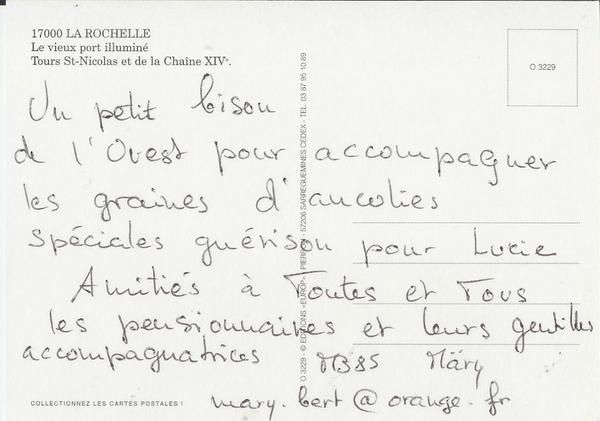 17000 LA ROCHELLE
Le vieux port illuminé
Tours St-Nicolas et de la Chaîne XIVe.
O 3229
Un petit bison
de l'Ouest pour accompagner
les graines d'ancolies
Spéciales guérison pour Lucie
Amitiés à Toutes et Tous
les pensionnaires et leurs gentilles
accompagnatrices MB85 Märy
mary.bert@orange.fr
COLLECTIONNEZ LES CARTES POSTALES !
O 3229 - © EDITIONS "EUROP" PIERRON - 57206 SARREGUEMINES CEDEX - TEL. 03 87 95 10 89